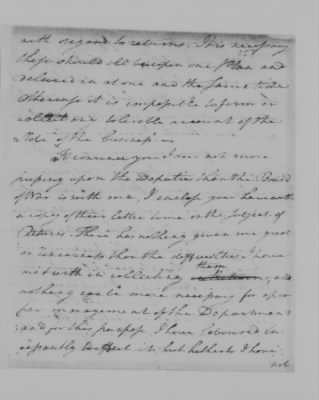 with regard to returns. It is necessary
these should all be upon one Plan and
delivered in at one and the same time
otherwise it is impossible to form or
collect any tolerable account of the
State of the business. —
To convince you I am not more
pressing upon the Deputies than the Board
of War is with me, I enclose you herewith
a copy of their letter to me on the subject of
returns. There has nothing given me great
er uneasiness than the difficulties I have
met with in collecting them and
nothing can be more necessary for a pro
per management of the Department
and for this purpose I have laboured in
cessantly to effect it; but hitherto I have
not